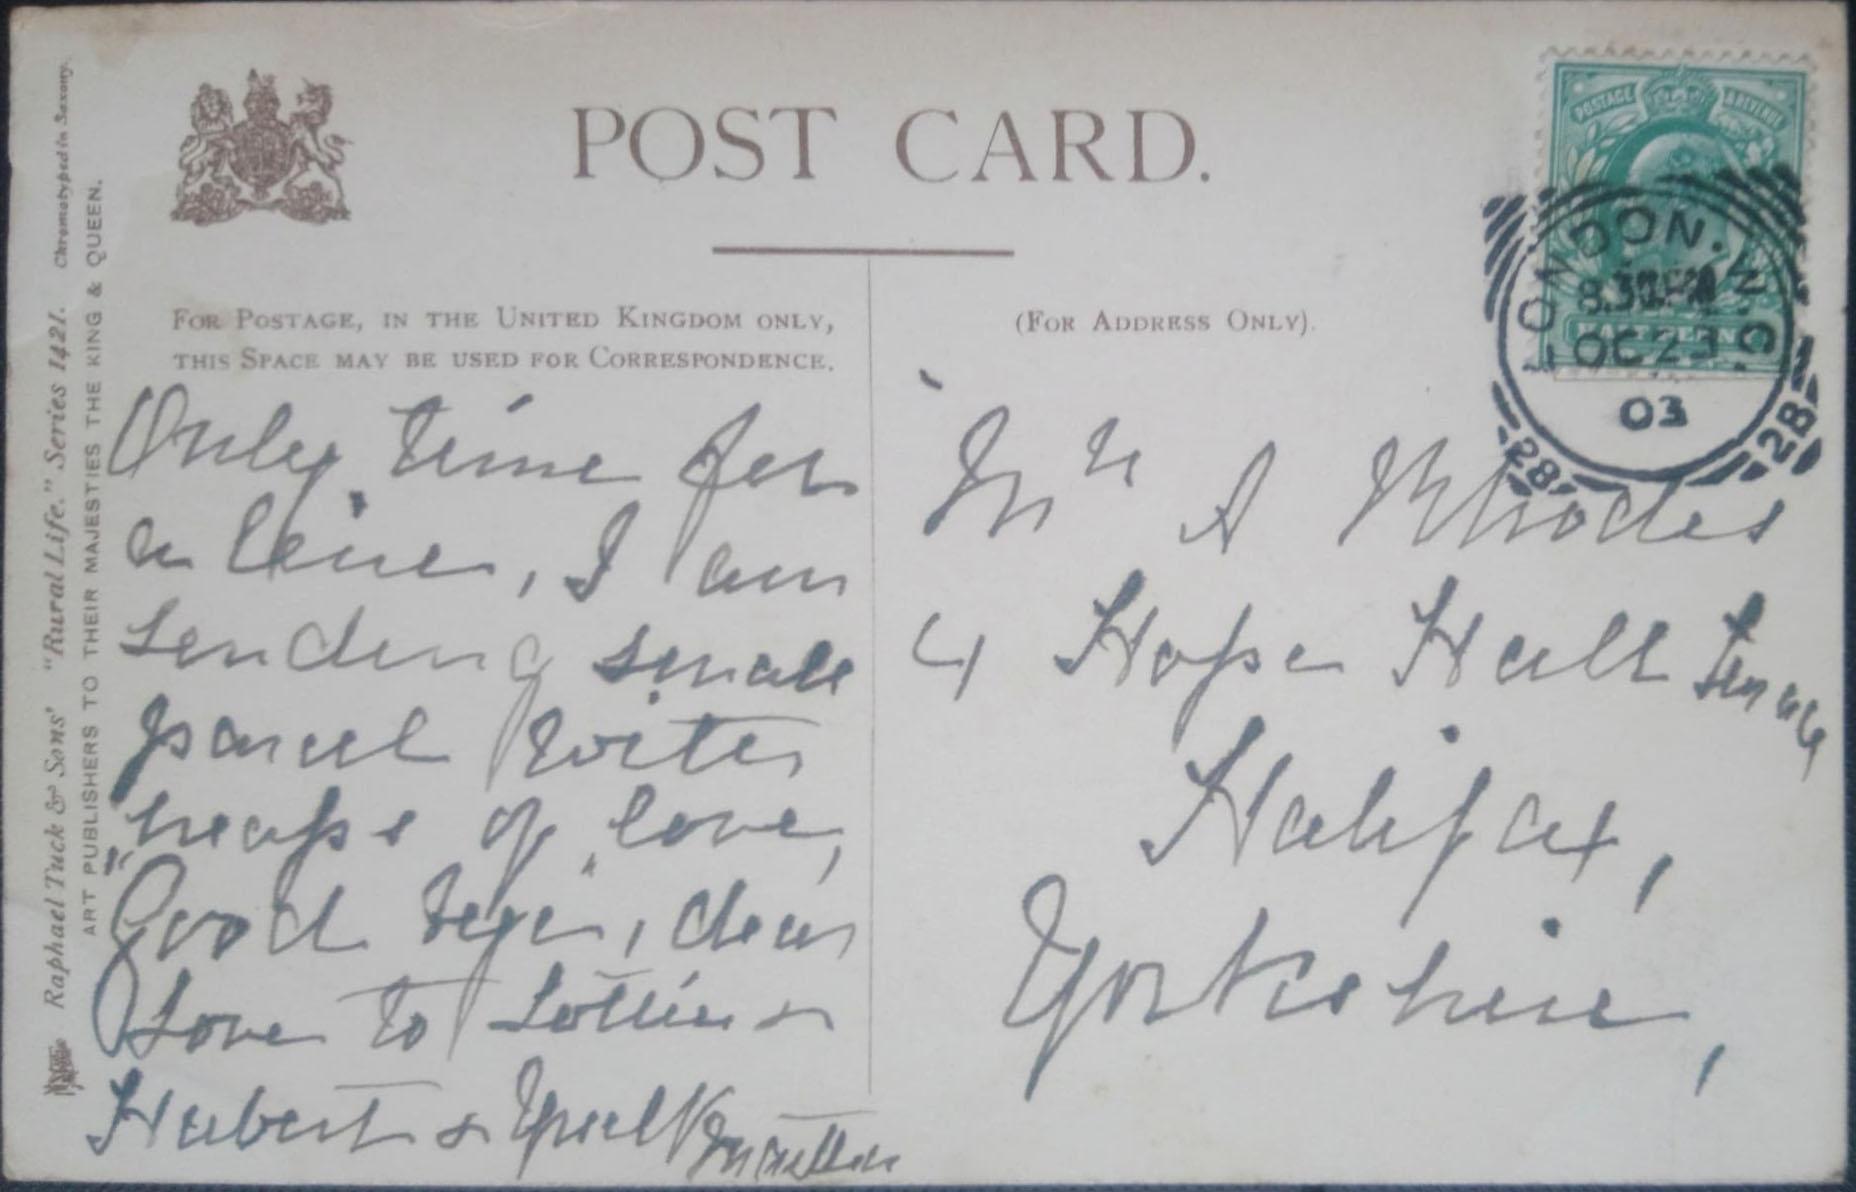 POST CARD.
FOR POSTAGE, IN THE UNITED KINGDOM ONLY,
THIS SPACE MAY BE USED FOR CORRESPONDENCE.
(FOR ADDRESS ONLY).
POSTAGE & REVENUE
HALFPENNY
LONDON. W.C.
8.30 PM
OC 23
03
28 28
Raphael Tuck & Sons' "Rural Life." Series 1421. Chromotyped in Saxony.
ART PUBLISHERS TO THEIR MAJESTIES THE KING & QUEEN.
Only time for
a line, I am
sending small
parcel with
"heaps of love,"
Good bye, dear
Love to Lottie &
Hubert &
Mr A Rhodes
4 Hope Hall Terrace
Halifax,
Yorkshire,